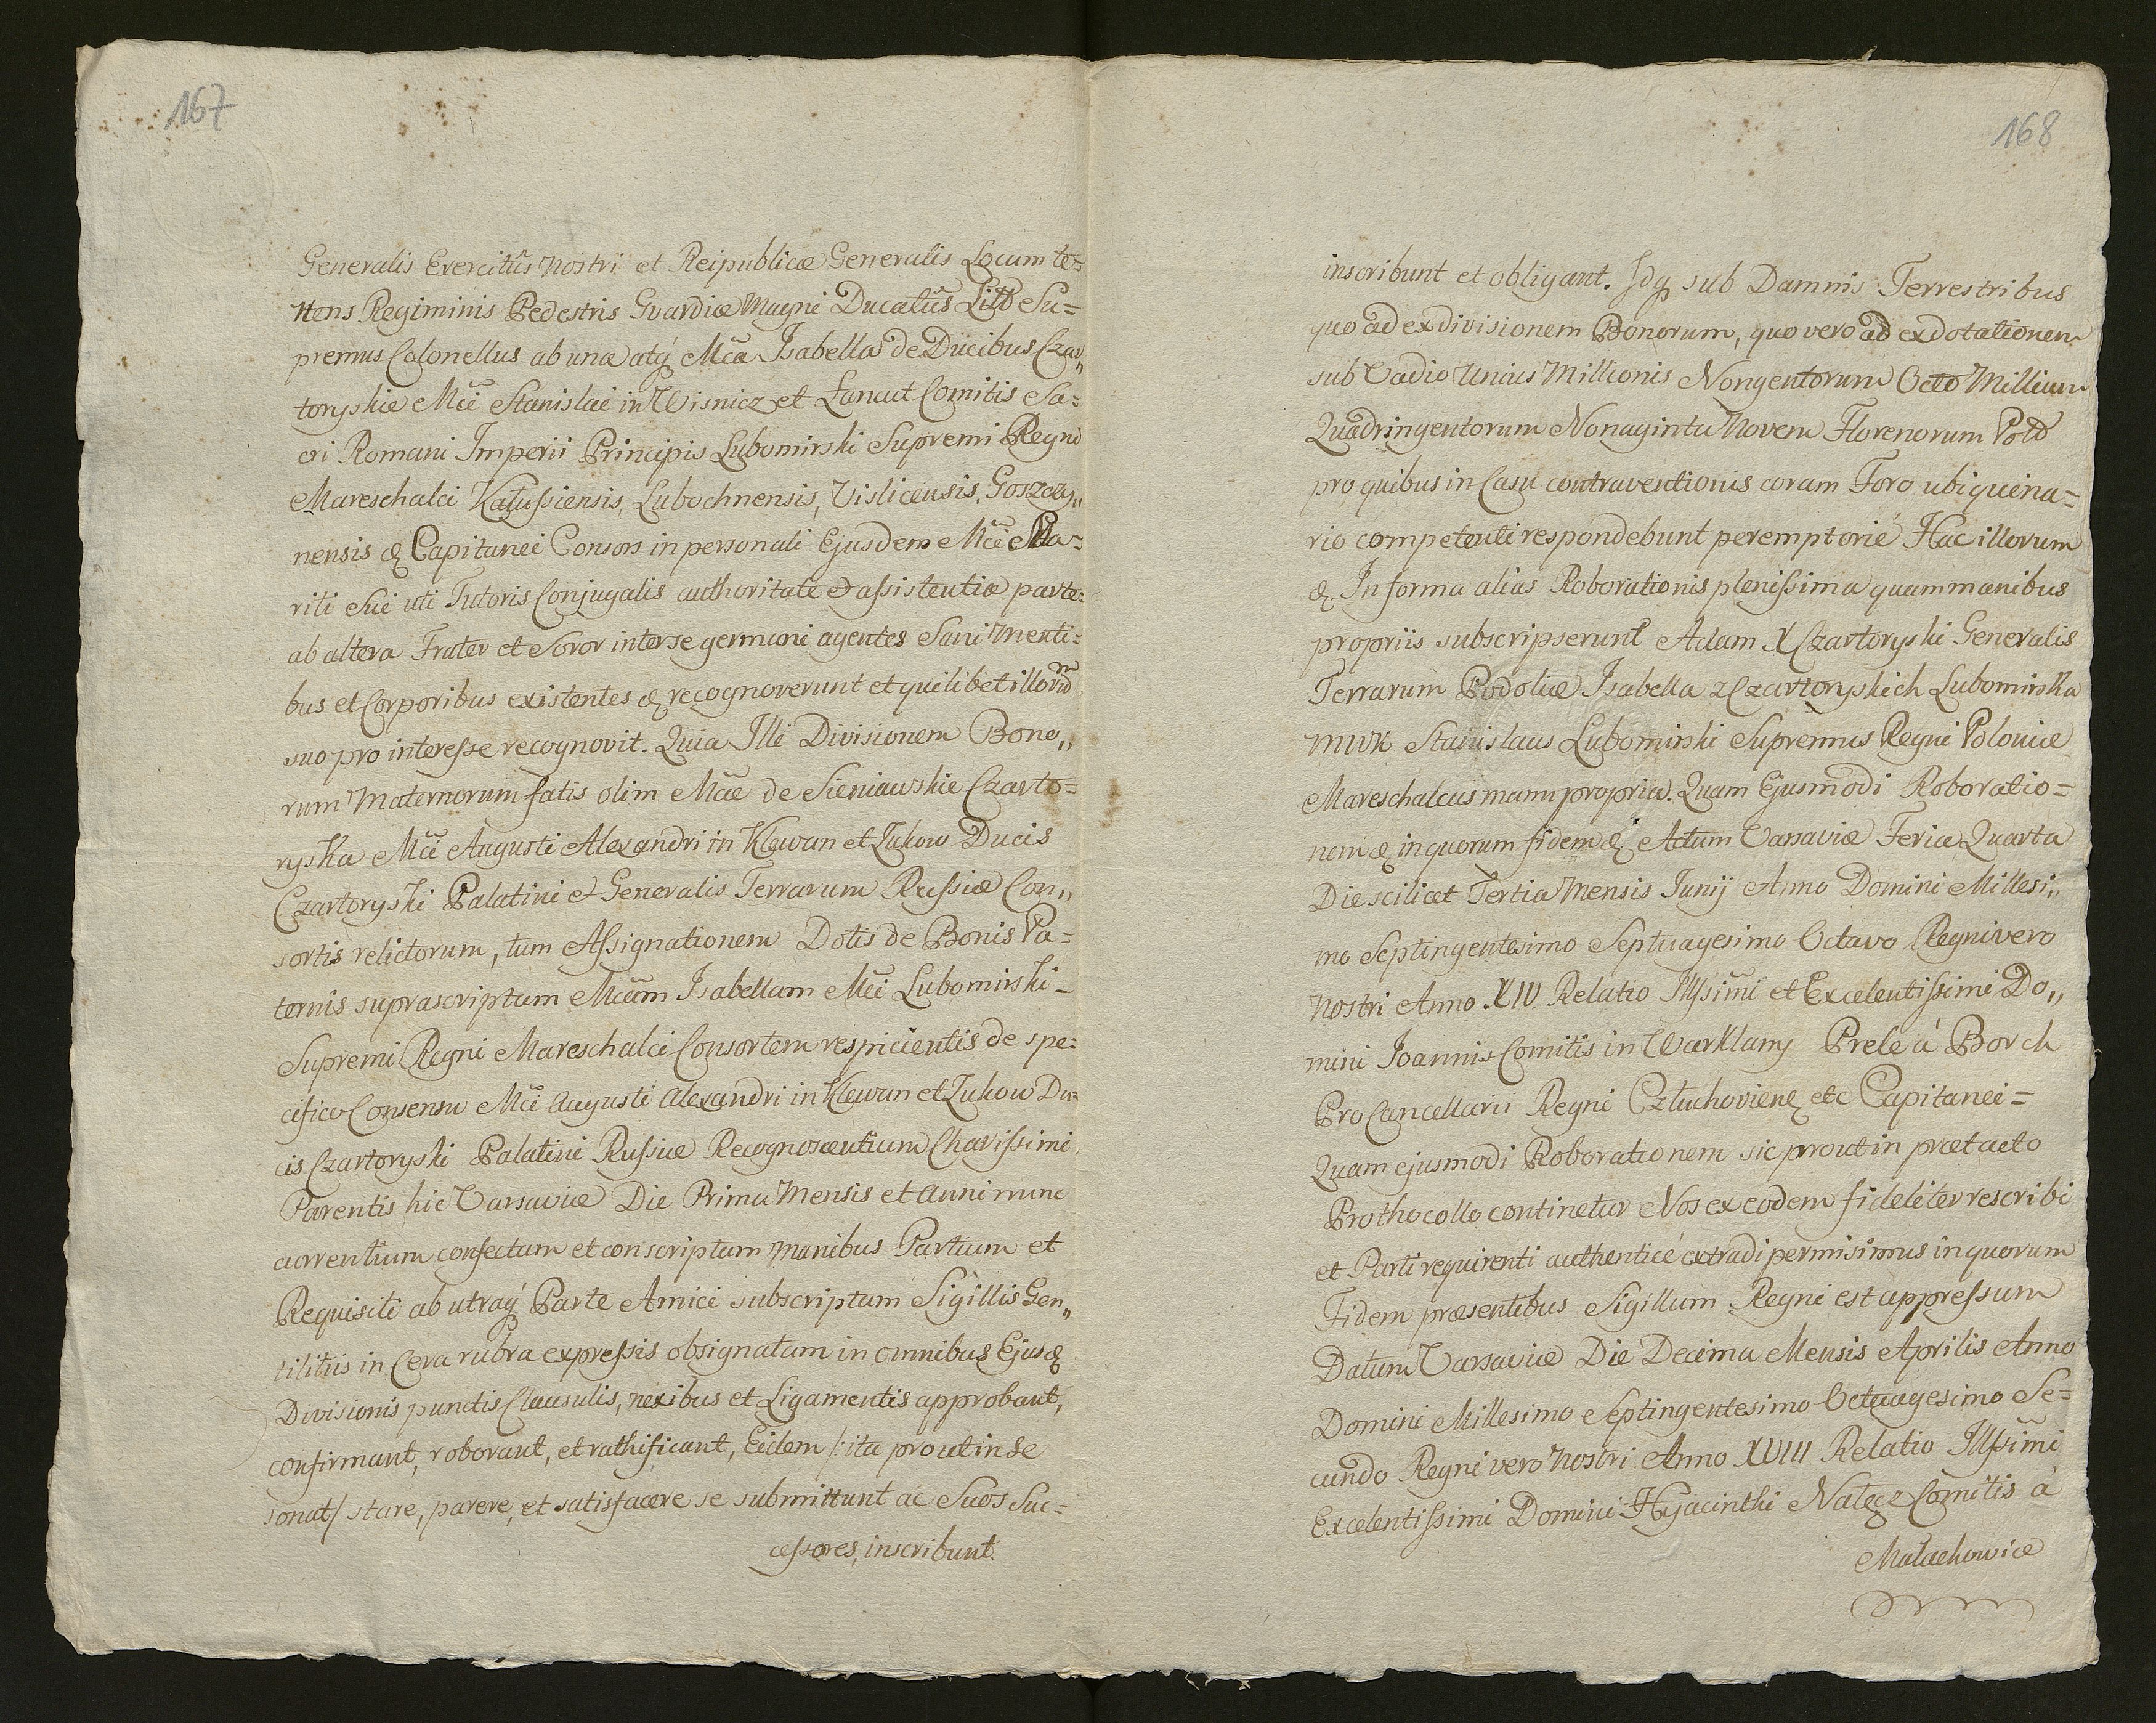 167
Generalis Exercitûs Nostri et Reipublicæ Generalis Locum te=
nens Regiminis Pedestris Gvardiæ Magni Ducatûs Litt Su=
premus Colonellus ab una atq́ Mĉa Isabella de Ducibus Czar„
toryskie Mĉi Stanislai in Wisnicz et Łancut Comitis Sa=
cri Romani Imperii Principis Lubomirski Supremi Regni
Mareschalci Kałussiensis, Lubochnensis, Vislicensis, Goszczy„
nensis & Capitanei Consors in personali Ejusdem Mĉi Ma=
riti Sui uti Tutoris Conjugalis authoritate & assistentia parte=
ab altera Frater et Soror inter se germani agentes Sani Menti=
bus et Corporibus existentes & recognoverunt et quilibet illorum
suo pro interesse recognovit. Quia Illi Divisionem Bono„
rum Maternorum fatis olim Mĉæ de Sieniawskie Czarto=
ryska Mĉi Augusti Alexandri in Klewan et Zukow Ducis
Czartoryski Palatini et Generalis Terrarum Russiæ Con„
sortis relictorum, tum Assignationem Dotis de Bonis Pa=
ternis suprascriptam Mĉam Isabellam Mĉi Lubomirski=
Supremi Regni Mareschalci Consortem respicientis de spe=
cifico Consensu Mĉi Augusti Alexandri in Klewan et Zukow Du=
cis Czartoryski Palatini Russiæ Recognoscentium Charissimi
Parentis hic Varsaviæ Die Prima Mensis et Anni nunc
currentium confectam et conscriptam Manibus Partium et
Requisiti ab utraq́ Parte Amici subscriptam Sigillis Gen„
tilitiis in Cera rubra expressis obsignatam in omnibus Ejus &
Divisionis punctis Clausulis, nexibus et Ligamentis approbant,
confirmant, roborant, et rathificant, Eidem /: ita prout in se
sonat / stare, parere, et satisfacere se submittunt ac Suos Suc=
cessores, inscribunt.
168
inscribunt et obligant. Idq́ sub Damnis Terrestribus
quo ad exdivisionem Bonorum, quo vero ad exdotationem
sub Vadio Unius Millionis Nongentorum Octo Millium
Quadringentorum Nonaginta Novem Florenorum Pold
pro quibus in Casu contraventionis coram Foro ubiquina=
rio competenti respondebunt peremptorié Hac illorum
& In forma alias Roborationis plenissima quam manibus
propriis subscripserunt Adam X Czartoryski Generalis
Terrarum Podoliæ Isabella z Czartoryskich Lubomirska
MWK Stanislaus Lubomirski Supremus Regni Poloniæ
Mareschalcus manu propria. Quam Ejusmodi Roboratio=
nem & in quorum fidem & Actum Varsaviæ Feria Quarta
Die scilicet Tertia Mensis Junij Anno Domini Millesi„
mo Septingentesimo Septuagesimo Octavo Regni vero
Nostri Anno XIV Relatio Illssimi et Excelentissimi Do„
mini Joannis Comitis in Warklany Prele à Borch
Pro Cancellarii Regni Człuchovien & etc Capitanei=
Quam ejusmodi Roborationem sic prout in prætacto
Prothocollo continetur Nos ex eodem fideliter rescribi
et Parti requirenti authenticé extradi permisimus in quorum
Fidem præsentibus Sigillum Regni est appressum
Datum Varsaviæ Die Decima Mensis Aprilis Anno
Domini Millesimo Septingentesimo Octuagesimo Se=
cundo Regni vero Nostri Anno XVIII Relatio Illssimi
Excelentissimi Domini Hyacinthi Nałęcz Comitis à
Małachowice